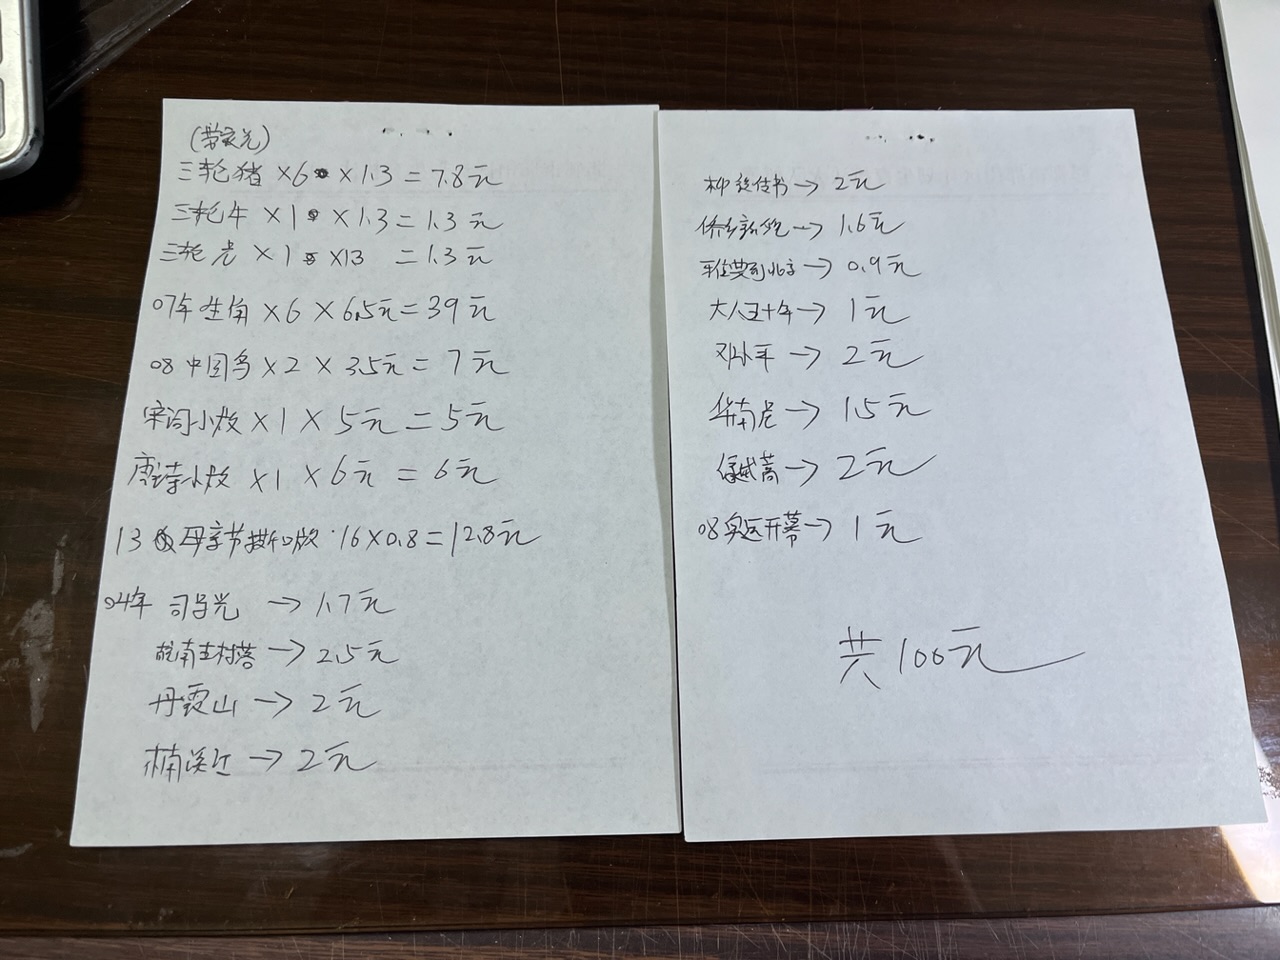 (带荧光)
三轮猪×6 ×1.3=7.8元
三轮牛×1 ×1.3=1.3元
三轮虎×1 ×13 =1.3元
07年生角×6×6.5元=39元
08中国鸟×2×3.5元=7元
宋词小版×1×5元=5元
唐诗小版×1×6元=6元
13 母亲节撕口版·16×0.8=12.8元
04年 司马光 →1.7元
皖南古村落→2.5元
丹霞山→2元
楠溪江→2元
柳毅传书→2元
侨乡新貌→1.6元
→0.9元
大人五十年→1元
邓小平→2元
华南虎→1.5元
绿绒蒿→2元
08奥运开幕→1元
共100元